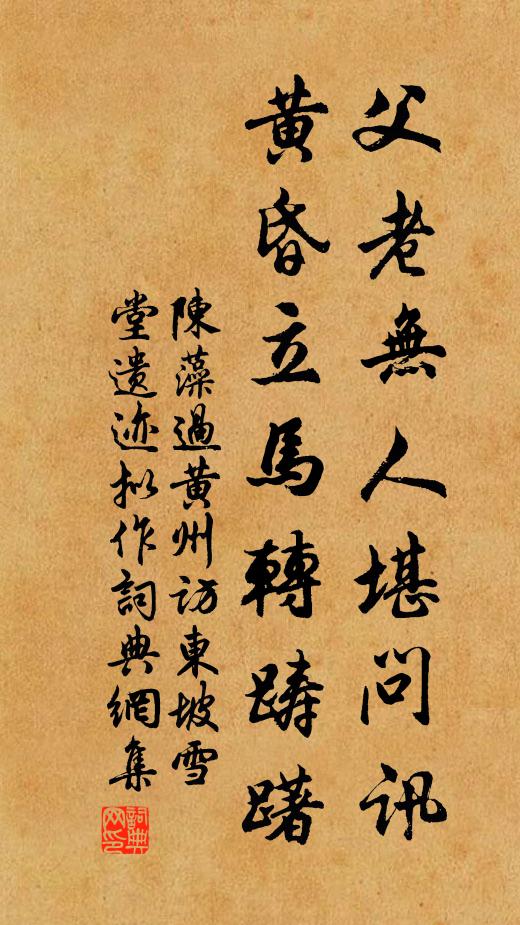 父老無人堪問訊
黃昏立馬轉踌躇
陳藻過黃州訪東坡雪
堂遗迹拟作詞典網集
詞典网印